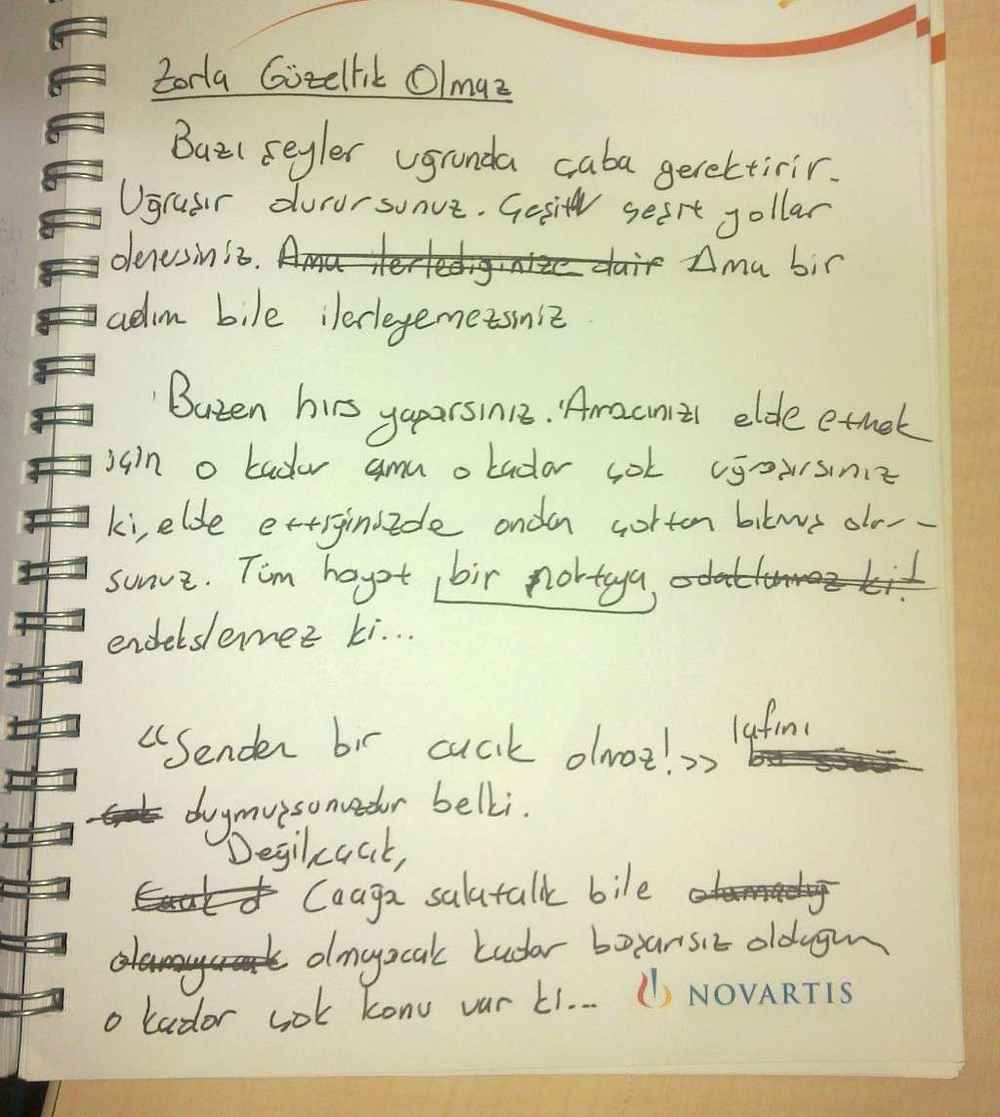 Zorla Güzellik Olmaz
Bazı şeyler uğrunda çaba gerektirir.
Uğraşır durursunuz. Çeşit çeşit yollar
denersiniz. Ama ilerlediğinize dair Ama bir
adım bile ilerleyemezsiniz
Bazen hırs yaparsınız. Amacınızı elde etmek
için o kadar ama o kadar çok uğraşırsınız
ki, elde ettiğinizde ondan çoktan bıkmış olur-
sunuz. Tüm hayat bir noktaya odaklanmaz ki!
endekslenmez ki...
lafını
"Senden bir cacık olmaz!>> bu sözü
çok duymuşsunuzdur belki.
Değil cacık,
Cacığa salatalık bile olamadığ
olamayacak olmayacak kadar başarısız olduğum
o kadar çok konu var ki...
NOVARTIS